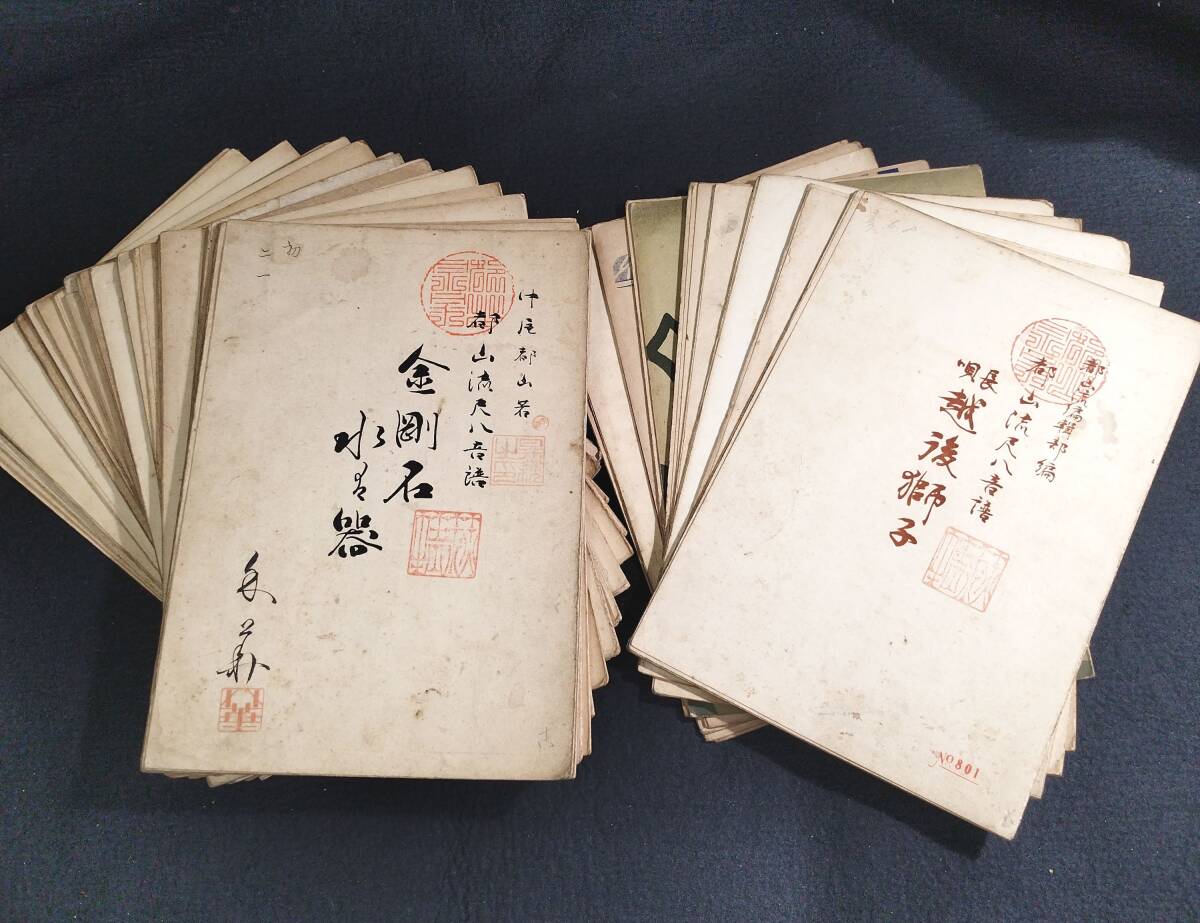 初
二一
中尾都山著
都山流尺八音譜
金剛石
水は器
都山流編輯部編
都山流尺八音譜
長唄
越後獅子
No801